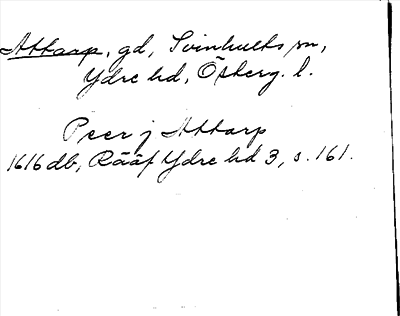 Attarp, gd, Svinhults sn,
Ydre hd, Österg. l.
Peer j Attarp
1616 db, Rääf Ydre hd 3, s. 161.